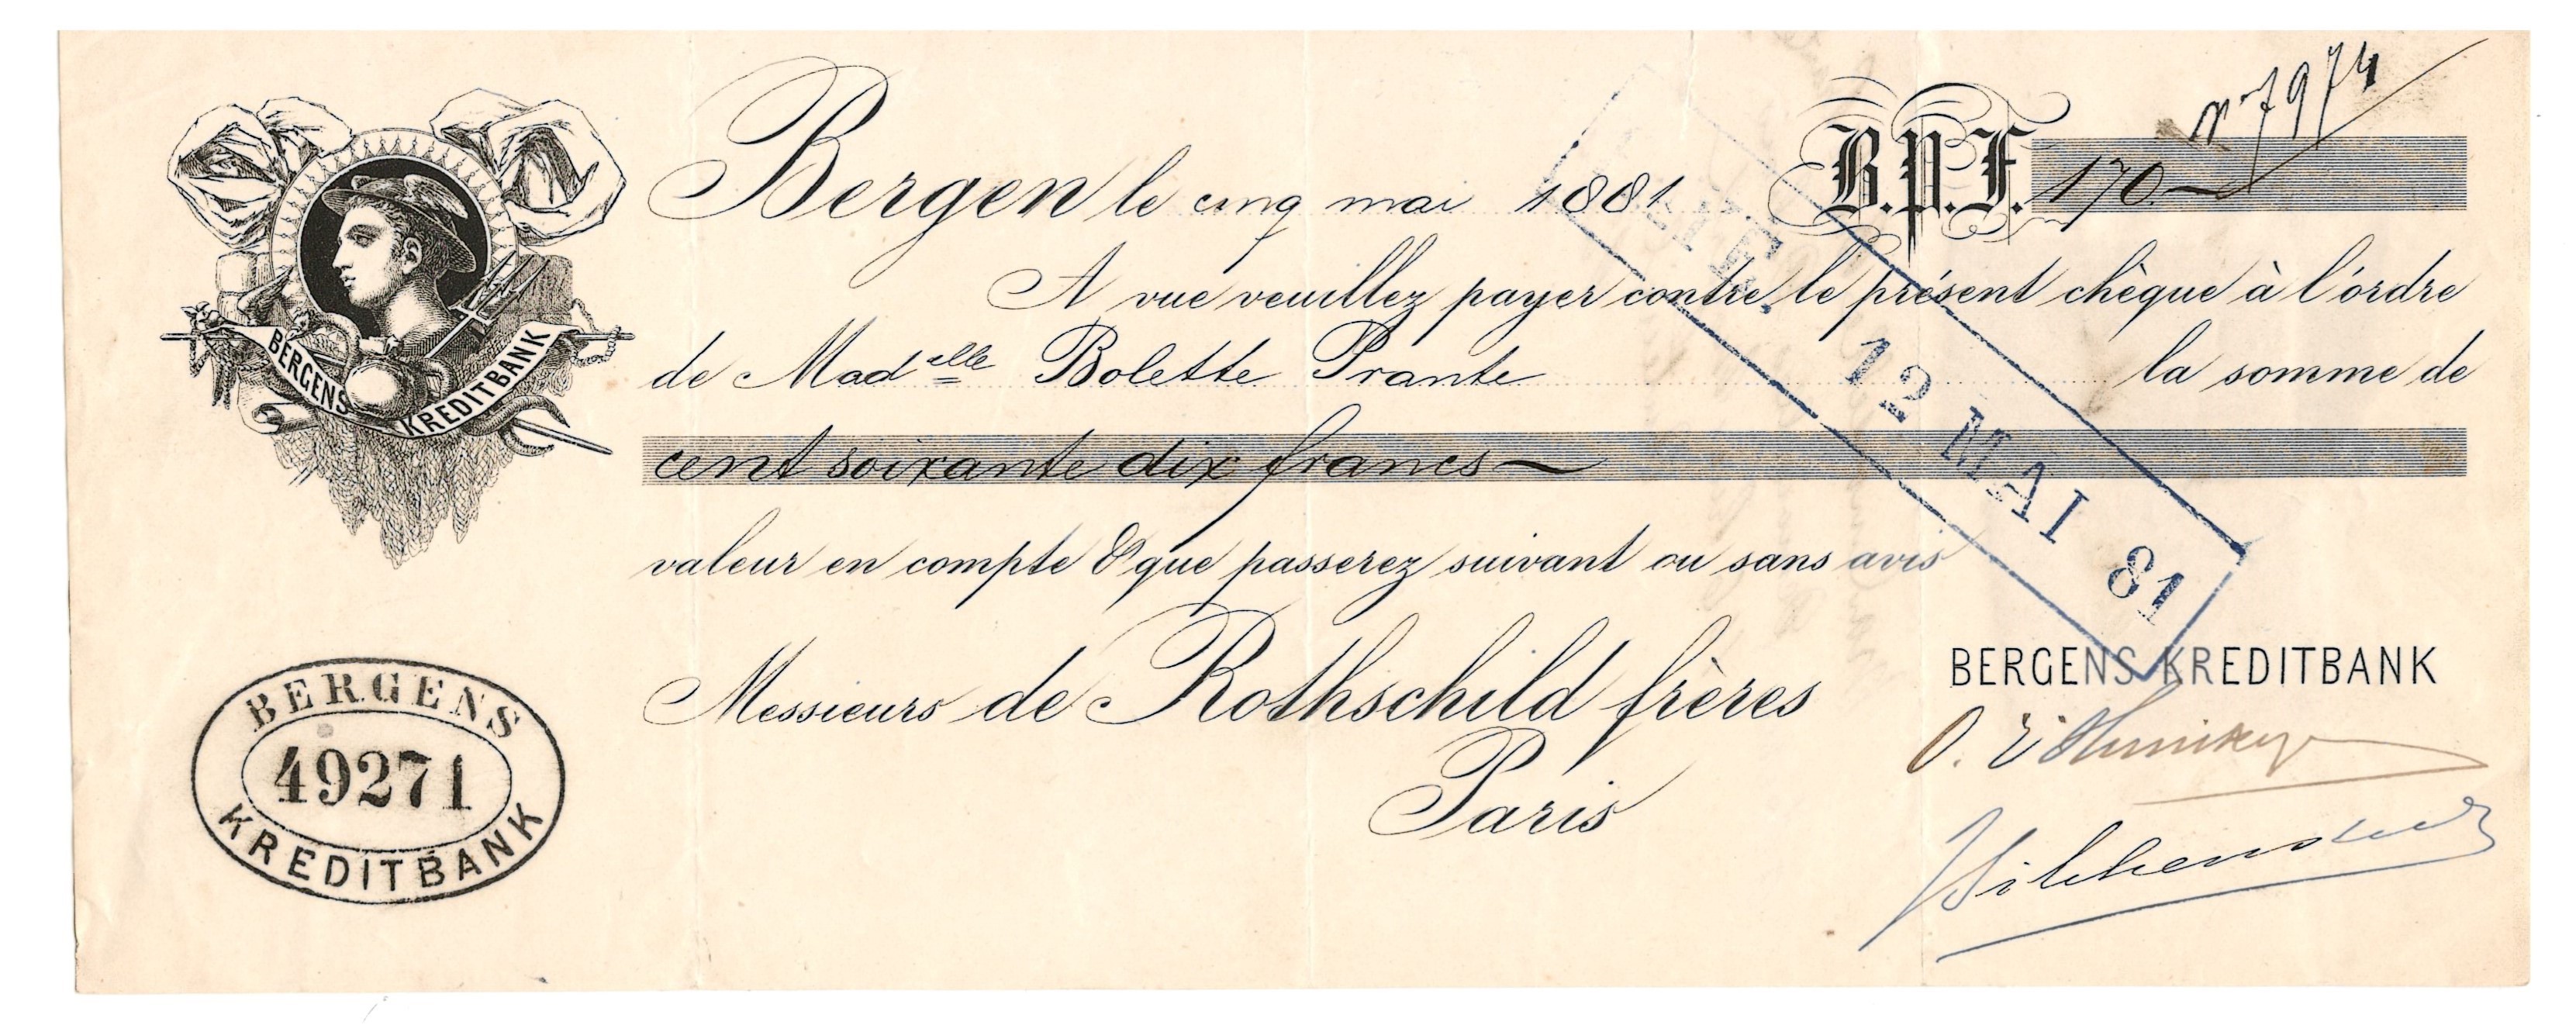 nº 7974
Bergen le cinq mai 1881 B.P.F. 170
A vue veuillez payer contre le présent chèque à l'ordre
de Mad^elle Bolette Prante la somme de
cent soixante dix francs
valeur en compte & que passerez suivant ou sans avis
Messieurs de Rothschild frères
Paris
BERGENS KREDITBANK
12 MAI 81
BERGENS KREDITBANK
BERGENS
49271
KREDITBANK